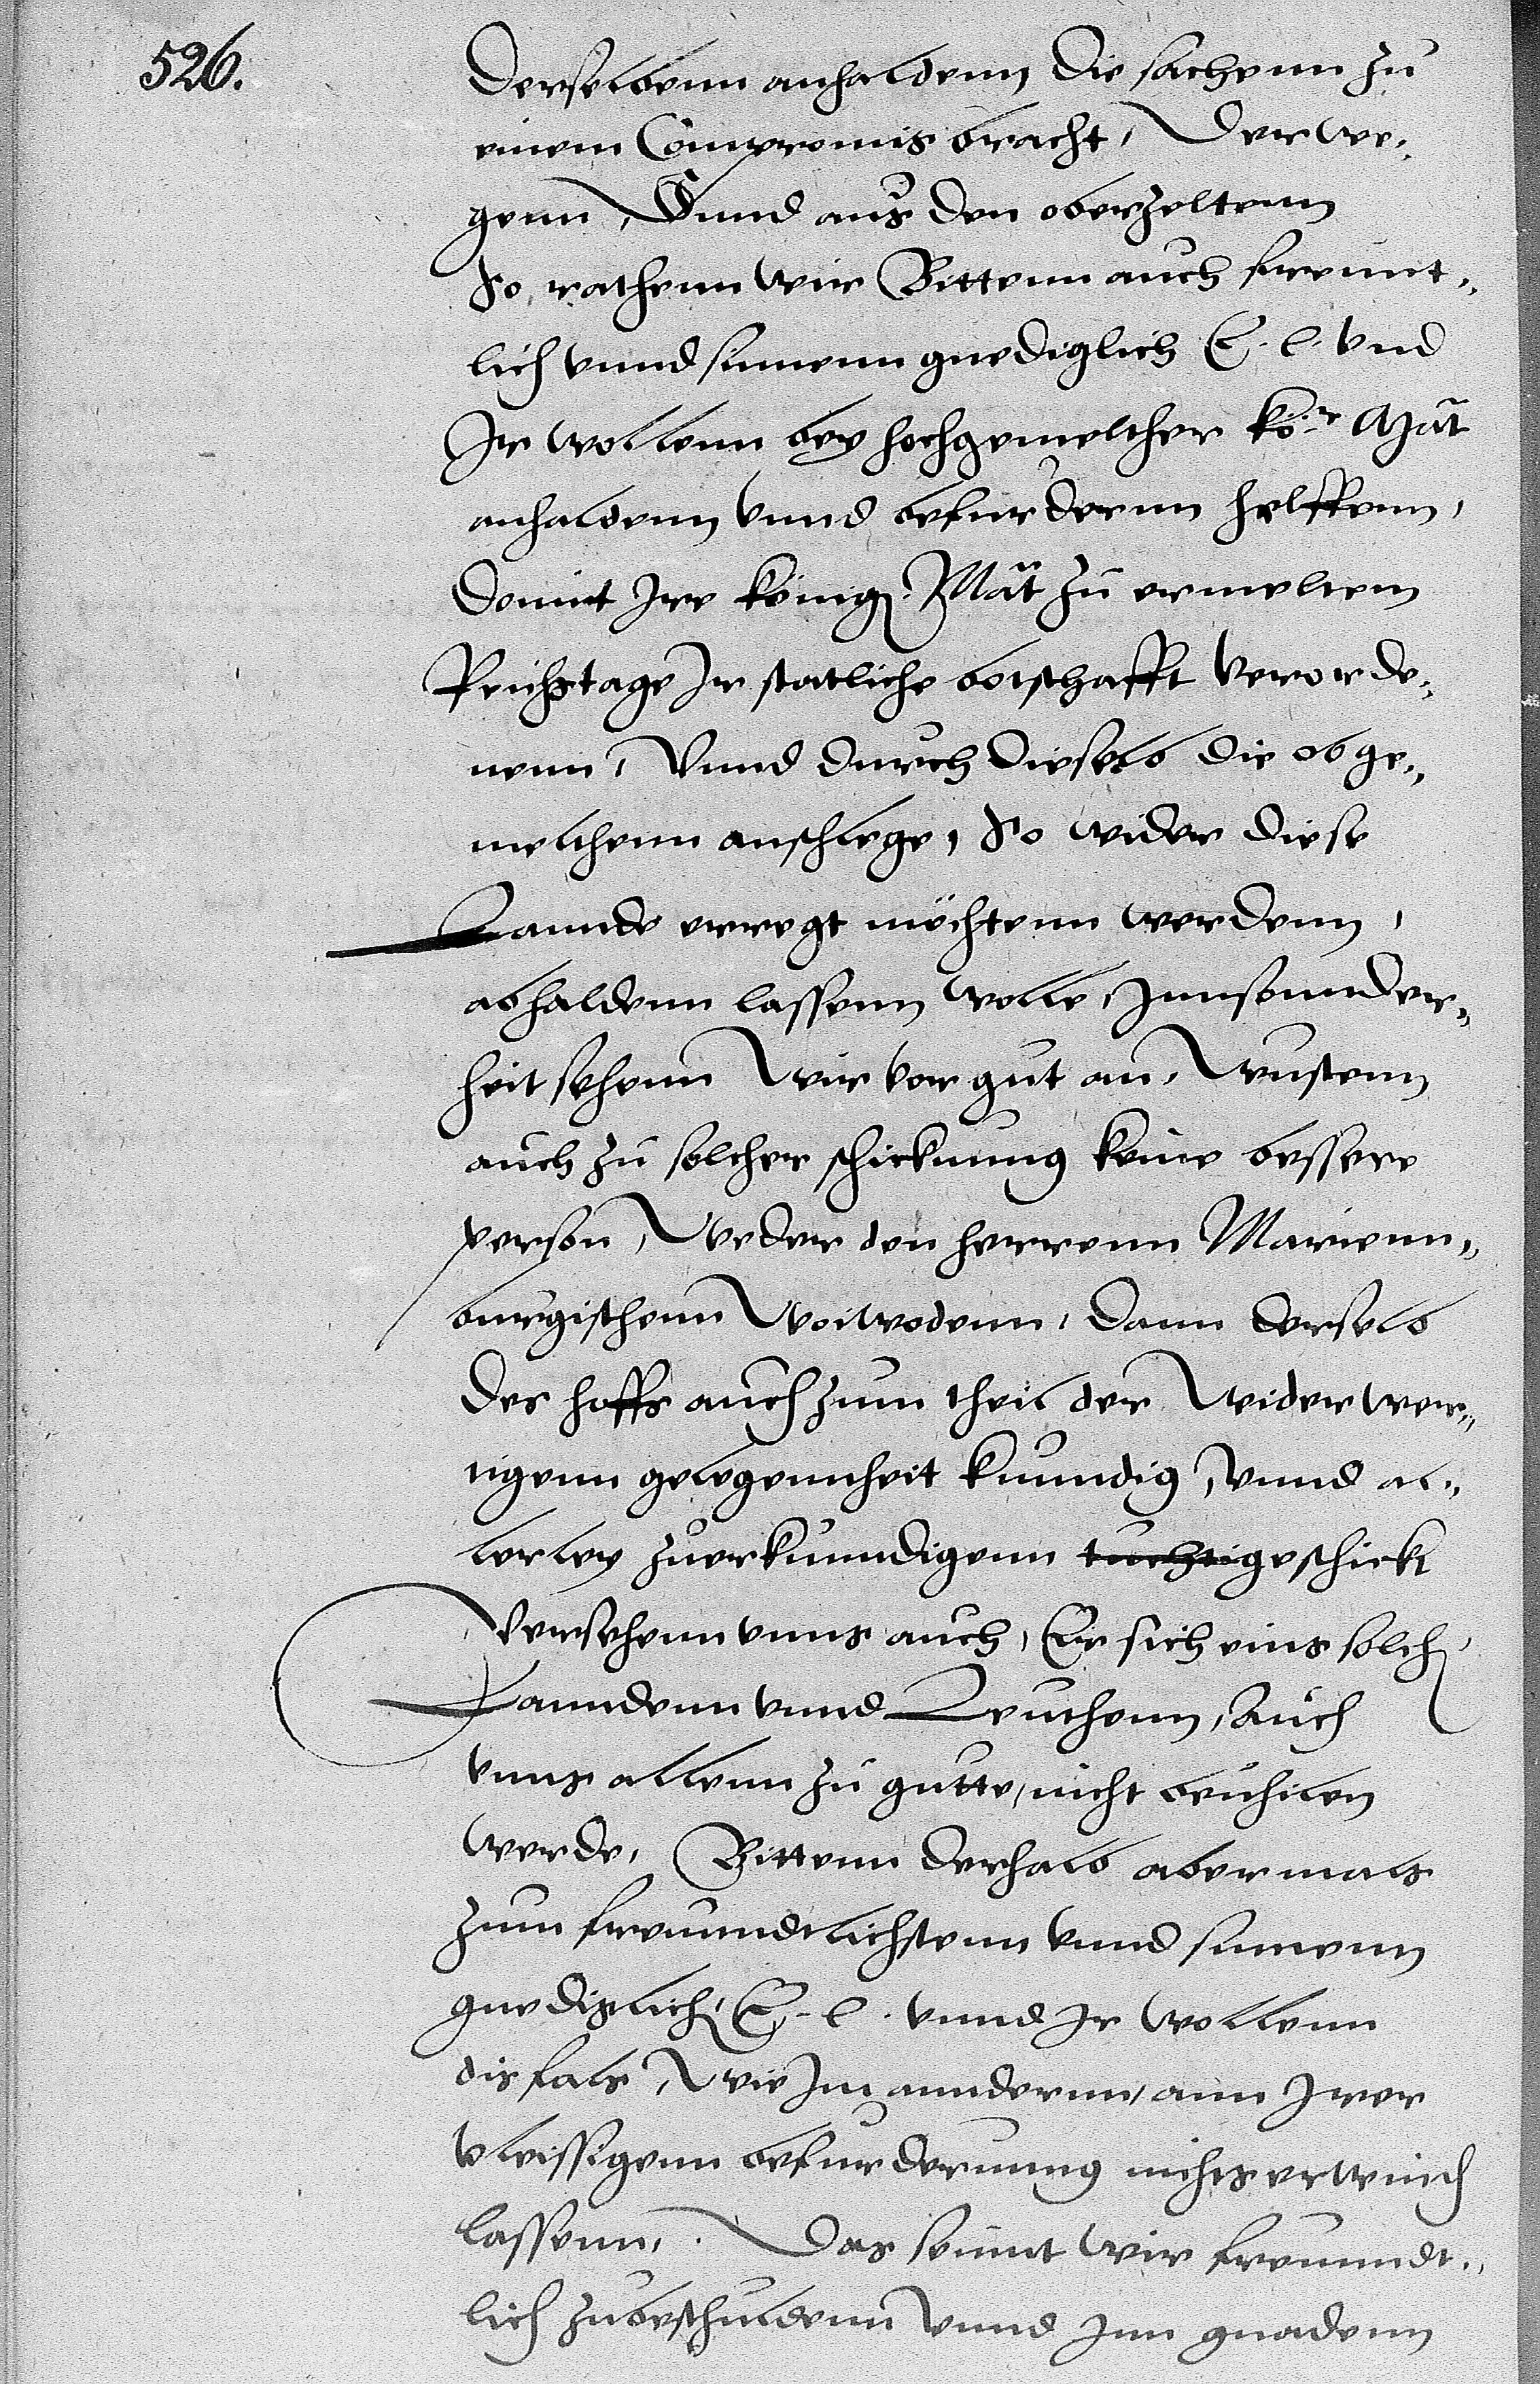 526.
Derselbenn anhaldenn die sachenn zu
einem Compromis bracht, Derwe„
genn, Vnnd aus den oberzeltenn
So rathenn wir Bittenn auch freunt„
lich vnnd sinnenn gnediglich E. l. vnd
Ir wollenn bey hochgemelther Ko:r Mat
anhaldenn vnnd befurdernn helffenn,
domit Ire königl. Mat zu ermeltem
Reichstage Ir statliche botschafft verorde„
nenn, Vnnd durch dieselb die obge„
melthenn anschlege, So wider diese
Lannde erregt möchtenn werdenn,
abhaldenn lassenn wolle, Innsonnder„
heit sehenn wir vor gut an, wustenn
auch zu solcher schicknung keine bessere
person, Weder den herrenn Marienn„
burgischenn Woiwodenn, dann derselb
des hoffs auch zum theil der widerwer„
tigenn gelegennheit kunndig, vnnd al„
lerley zuerkunndigenn tuchtig geschickt
Versehenn vnns auch, Er sich eins solchs
Lanndenn vnnd Leuthenn, Auch
vnns allenn zu gutte, nicht beuhilen
werde, Bittenn derhalb abermals
zum freunndtlichstenn vnnd sinnenn
gnediglich, E. l. vnnd Ir wollenn
disfals, wie Inn anndernn, ann Irer
vleissigenn befurdernung nichs erwinden
lassenn, Das seinnt wir freunndt„
lich zubeschuldenn vnnd Inn gnadenn